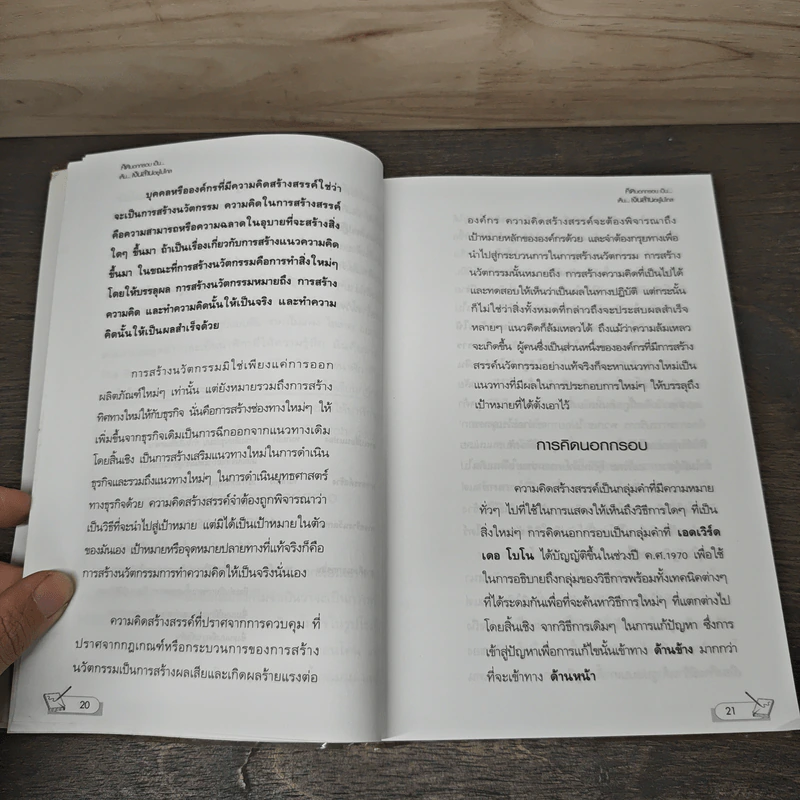 คิดนอกกรอบ เป็น...
เห็น... เงินล้านอยู่ไม่ไกล
บุคคลหรือองค์กรที่มีความคิดสร้างสรรค์ใช่ว่า
จะเป็นการสร้างนวัตกรรม ความคิดในการสร้างสรรค์
คือความสามารถหรือความฉลาดในอุบายที่จะสร้างสิ่ง
ใดๆ ขึ้นมา ถ้าเป็นเรื่องเกี่ยวกับการสร้างแนวความคิด
ขึ้นมา ในขณะที่การสร้างนวัตกรรมคือการทำสิ่งใหม่ๆ
โดยให้บรรลุผล การสร้างนวัตกรรมหมายถึง การสร้าง
ความคิด และทำความคิดนั้นให้เป็นจริง และทำความ
คิดนั้นให้เป็นผลสำเร็จด้วย
การสร้างนวัตกรรมมิใช่เพียงแค่การออก
ผลิตภัณฑ์ใหม่ๆ เท่านั้น แต่ยังหมายรวมถึงการสร้าง
ทิศทางใหม่ให้กับธุรกิจ นั่นคือการสร้างช่องทางใหม่ๆ ให้
เพิ่มขึ้นจากธุรกิจเดิมเป็นการฉีกออกจากแนวทางเดิม
โดยสิ้นเชิง เป็นการสร้างเสริมแนวทางใหม่ในการดำเนิน
ธุรกิจและรวมถึงแนวทางใหม่ๆ ในการดำเนินยุทธศาสตร์
ทางธุรกิจด้วย ความคิดสร้างสรรค์จำต้องถูกพิจารณาว่า
เป็นวิธีที่จะนำไปสู่เป้าหมาย แต่มิได้เป็นเป้าหมายในตัว
ของมันเอง เป้าหมายหรือจุดหมายปลายทางที่แท้จริงก็คือ
การสร้างนวัตกรรมการทำความคิดให้เป็นจริงนั่นเอง
ความคิดสร้างสรรค์ที่ปราศจากการควบคุม ที่
ปราศจากกฎเกณฑ์หรือกระบวนการของการสร้าง
นวัตกรรมเป็นการสร้างผลเสียและเกิดผลร้ายแรงต่อ
20
คิดนอกกรอบ เป็น...
เห็น... เงินล้านอยู่ไม่ไกล
องค์กร ความคิดสร้างสรรค์จะต้องพิจารณาถึง
เป้าหมายหลักขององค์กรด้วย และจำต้องกรุยทางเพื่อ
นำไปสู่กระบวนการในการสร้างนวัตกรรม การสร้าง
นวัตกรรมนั้นหมายถึง การสร้างความคิดที่เป็นไปได้
และทดสอบให้เห็นว่าเป็นผลในทางปฏิบัติ แต่กระนั้น
ก็ไม่ใช่ว่าสิ่งทั้งหมดที่กล่าวถึงจะประสบผลสำเร็จ
หลายๆ แนวคิดก็ล้มเหลวได้ ถึงแม้ว่าความล้มเหลว
จะเกิดขึ้น ผู้คนซึ่งเป็นส่วนหนึ่งขององค์กรที่มีการสร้าง
สรรค์นวัตกรรมอย่างแท้จริงก็จะหาแนวทางใหม่เป็น
แนวทางที่มีผลในการประกอบการใหม่ๆ ให้บรรลุถึง
เป้าหมายที่ได้ตั้งเอาไว้
การคิดนอกกรอบ
ความคิดสร้างสรรค์เป็นกลุ่มคำที่มีความหมาย
ทั่วๆ ไปที่ใช้ในการแสดงให้เห็นถึงวิธีการใดๆ ที่เป็น
สิ่งใหม่ๆ การคิดนอกกรอบเป็นกลุ่มคำที่ เอดเวิร์ด
เดอ โบโน ได้บัญญัติขึ้นในช่วงปี ค.ศ.1970 เพื่อใช้
ในการอธิบายถึงกลุ่มของวิธีการพร้อมทั้งเทคนิคต่างๆ
ที่ได้ระดมกันเพื่อที่จะค้นหาวิธีการใหม่ๆ ที่แตกต่างไป
โดยสิ้นเชิง จากวิธีการเดิมๆ ในการแก้ปัญหา ซึ่งการ
เข้าสู่ปัญหาเพื่อการแก้ไขนั้นเข้าทาง ด้านข้าง มากกว่า
ที่จะเข้าทาง ด้านหน้า
21